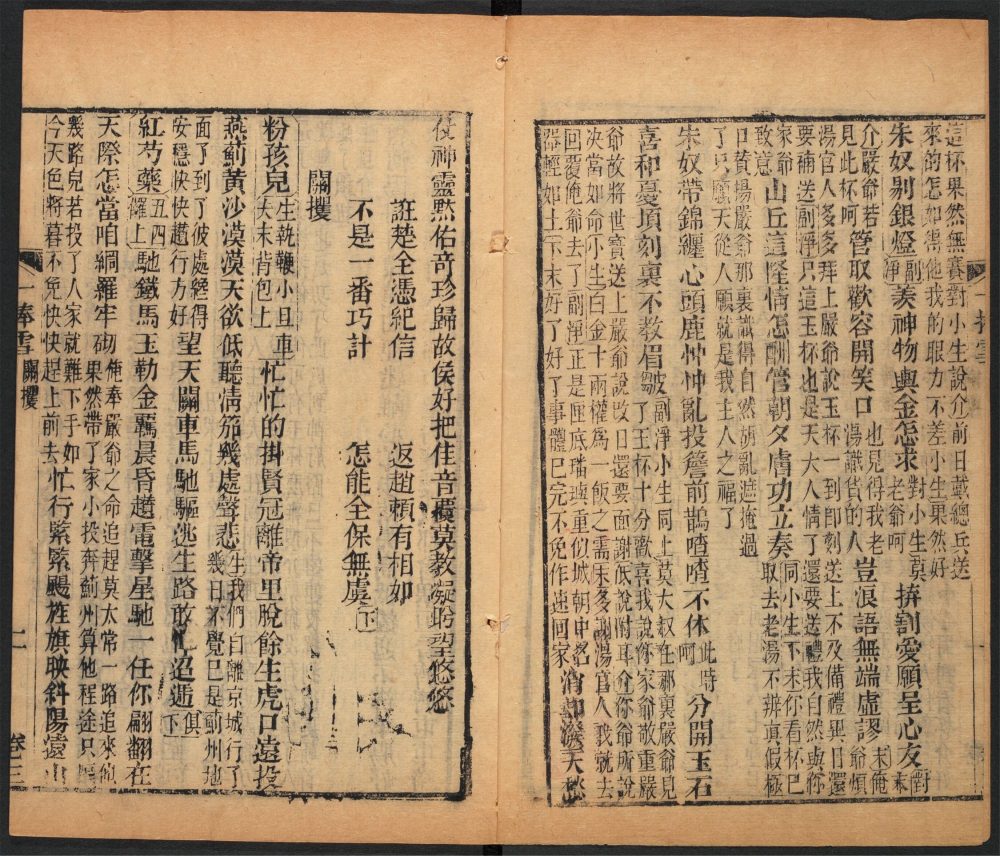 這杯果然無賽對小生說介前日戴總兵送
來的怎如得他我的眼力不差小生果然好
朱奴剔銀燈副淨羨神物與金怎求對小生莫老爺呵捹割愛願呈心友對末
介嚴爺若見此杯呵管取歡容開笑口也見得我老湯識貨的人豈浪語無端虛謬末俺爺煩
湯官人多多拜上嚴爺說玉杯一到即刻送上不及備禮異日還
要補送副淨只這玉杯也是天大人情了還要送禮我自然與你
家爺敢意山丘這隆情怎酬管朝夕膚功立奏同小生下末你看杯已取去老湯不辨真假極
口贊揚嚴爺那裏識得自然胡亂遮掩過
了只願天從人願就是我主人之福了
朱奴帶錦纏心頭鹿忡忡亂投簷前鵲喳喳不休此時呵分開玉石
喜和憂頃刻裏不教眉皺副淨小生同上莫大叔在那裏嚴爺見了玉杯十分歡喜我說你家爺敬重嚴
爺故將世寶送上嚴爺說改日還要面謝低說附耳介你爺所說
決當如命小生白金十兩權為一飯之需末多謝湯官人我就去
回覆俺爺去了副淨正是匣底璠璵重似城朝中名
器輕如土下末好了好了事體已完不免作速回家消却潑天愁
一捧雪
使神靈默佑奇珍歸故侯好把住音覆莫教凝盻望悠悠
誑楚全憑紀信
返趙賴有相如
不是一番巧計
怎能全保無虞下
關攫
粉孩兒生執鞭小旦車夫末背包上忙忙的掛賢冠離帝里脫餘生虎口遠投
燕薊黃沙漠漠天欲低聽淸笳幾處聲悲生我們自離京城行了幾日不覺已是薊州地
面了到了彼處纔得安穩快快趲行方好望天關車馬馳驅逃生路敢忙迢遞俱下
紅芍藥丑四儸上馳鐵馬玉勒金覊晨昏趲電擊星馳一任你翩翻在
天際怎當咱網羅牢砌俺奉嚴爺之命追趕莫太常一路追來偵果然帶了家小投奔薊州算他程途只
幾路兒若投了人家就難下手如今天色將暮不免快快趕上前去忙行緊緊颺旌旗映斜陽遠山
一捧雪
關攫
二
卷三